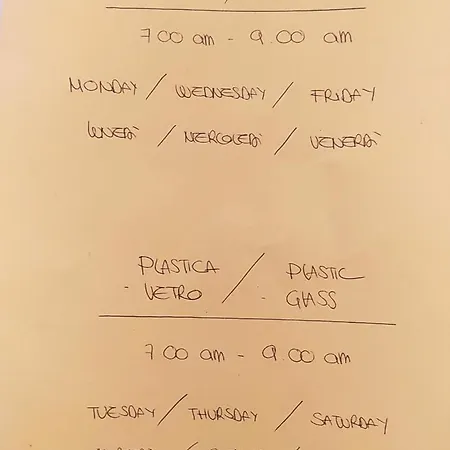 7 00 am - 9.00 am
MONDAY / WEDNESDAY / FRIDAY
LUNEDÌ / MERCOLEDÌ / VENERDÌ
PLASTICA / PLASTIC
- VETRO - GLASS
7 00 am - 9.00 am
TUESDAY / THURSDAY / SATURDAY